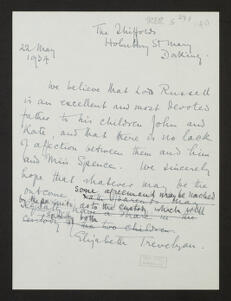 The Shiffolds
Holmbury St Mary
Dorking.
22 May
1934
We believe that Lord Russell
is an excellent and most devoted
father to his children John and
Kate, and that there is no lack
of affection between them and him
and Miss Spence. We sincerely
hope that whatever may be the
outcome some agreement may be reached
by the parents as to the custody which will
have a share in the
custody of the two children.
Elizabeth Trevelyan.